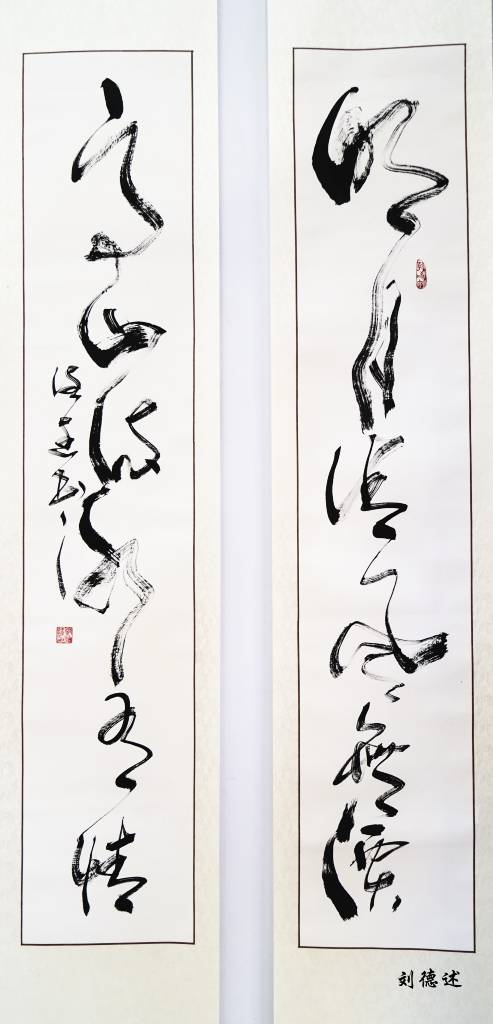 明月清风無價
高山流水有情
德述书
刘德述